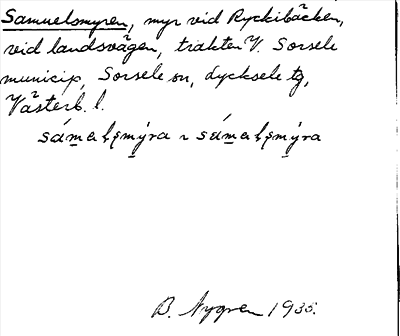 Samuelsmyren, myr vid Ryckibäcken,
vid landsvägen, trakten V. Sorsele
municip, Sorsele sn, Lycksele tg,
Västerb. l.
sámaḷşmýra ~ sámaḷşmýra
B. Nygren 1935.